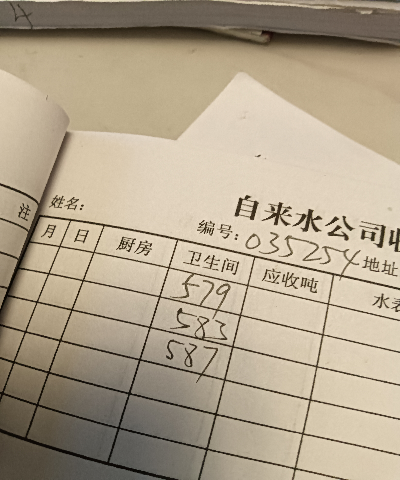 4
注
姓名:
自来水公司收
编号: 035254 地址
月 日 厨房 卫生间 应收吨 水表
579
583
587